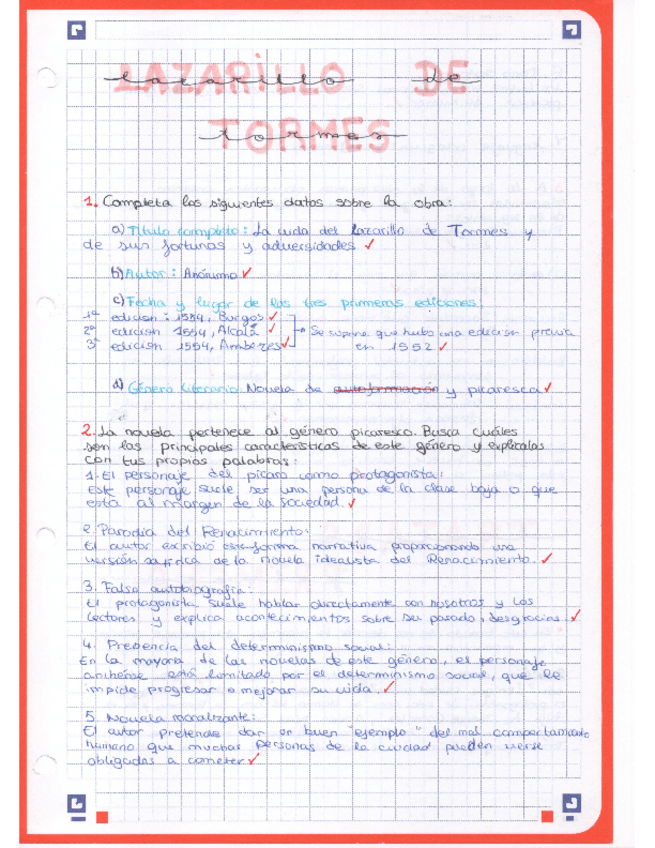 LAZARILLO DE
TORMES
lazarillo de
tormes
1. Completa los siguientes datos sobre la obra:
a) Título completo: La vida del Lazarillo de Tormes y
de sus fortunas y adversidades ✓
b) Autor: Anónimo ✓
c) Fecha y lugar de las tres primeras ediciones.
1ª edición: 1554, Burgos ✓
2ª edición 1554, Alcalá ✓ → Se supone que hubo una edición previa
3ª edición 1554, Amberes ✓ en 1552 ✓
d) Género literario: Novela de autoformación y picaresca ✓
2. La novela pertenece al género picaresco. Busca cuáles
son las principales características de este género y explícalas
con tus propias palabras:
1. El personaje del pícaro como protagonista:
Este personaje suele ser una persona de la clase baja o que
está al margen de la sociedad. ✓
2. Parodia del Renacimiento:
El autor escribió esta forma narrativa proporcionando una
versión satírica de la novela idealista del Renacimiento. ✓
3. Falsa autobiografía:
El protagonista suele hablar directamente con nosotros y los
lectores y explica acontecimientos sobre su pasado, desgracias. ✓
4. Presencia del determinismo social:
En la mayoría de las novelas de este género, el personaje
está limitado por el determinismo social, que le
impide progresar o mejorar su vida. ✓
5. Novela moralizante:
El autor pretende dar un buen "ejemplo" del mal comportamiento
humano que muchas personas de la ciudad pueden verse
obligadas a cometer ✓